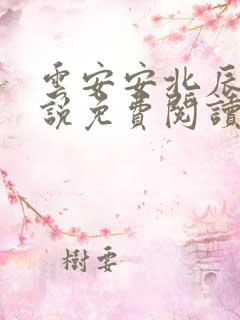 雲安安北辰
說免費閱讀
樹要